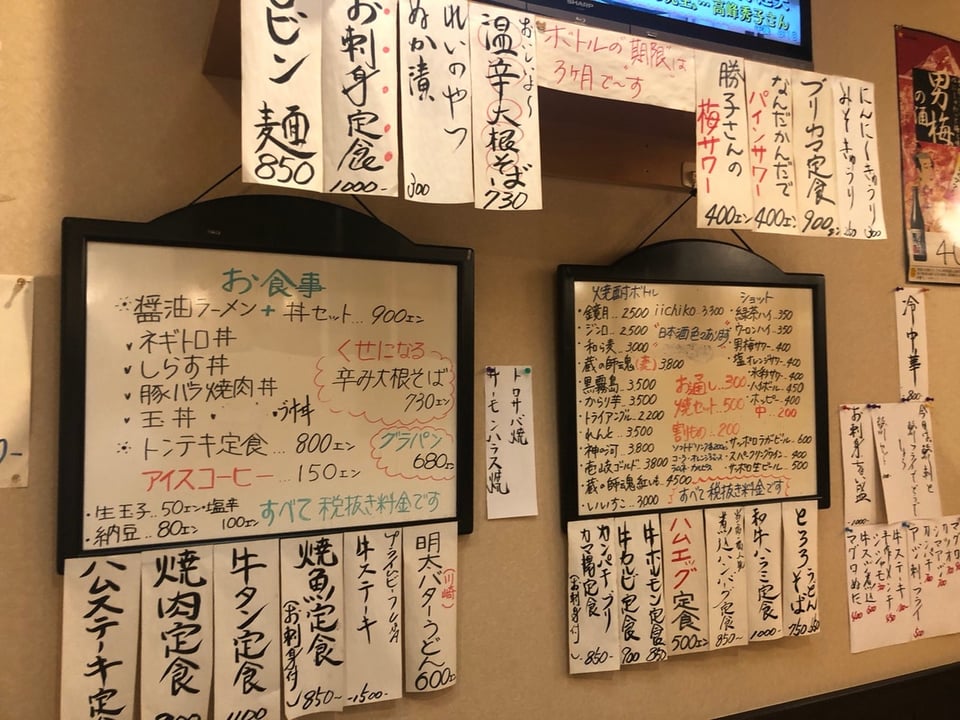 高峰秀子さん
SHARP
ビン麺
850
お刺身定食
1000-
れいのやつ
ぬか漬
300
おいしいよ〜
温辛大根そば
730
ボトルの期限は
3ヶ月で〜す
勝子さんの
梅サワー
400エン
なんだかんだで
パインサワー
400エン
ブリカマ定食
900エン
にんにくきゅうり
みそきゅうり
男梅
の酒
お食事
醤油ラーメン+丼セット…900エン
ネギトロ丼
しらす丼
豚バラ焼肉丼
玉丼
トンテキ定食…800エン
アイスコーヒー…150エン
くせになる
辛み大根そば
730エン
グラパン
680エン
・生玉子‥50エン・塩辛
・納豆‥80エン 100エン
すべて税抜き料金です
トロサバ焼
サーモンハラス焼
焼酎ボトル
・鏡月…2500
・ジンロ…2500
・和ら麦…3000
・蔵の師魂(麦)3800
・黒霧島…3500
・からり芋…3500
・トライアングル…2200
・れんと…3500
・神の河…3800
・壱岐ゴールド…3800
・蔵の師魂紅いも…4500
・いいちこ…3000
iichiko…3300
日本酒色々あり〼
お通し…300
焼セット…500
割もの…200
ショット
・緑茶ハイ…350
・ウーロンハイ…350
・男梅サワー…400
・塩オレンジサワー…400
・ハイボール…450
・ホッピー…400
中…200
・サッポロラガービール…600
・スパークリングワイン…400
・サッポロ生ビール…500
すべて税抜き料金です
冷中華
800
お刺身
1000
ハムステーキ定
焼肉定食
牛タン定食
1100
焼魚定食
(お刺身付)
850-
牛ステーキ
-1500-
明太バターうどん
(川崎)
600エン
カンパチ・ブリ
カマ焼定食
(お刺身付)
850-
牛カルビ定食
900
牛ホルモン定食
850
ハムエッグ定食
500エン
煮込ハンバーグ定食
850-
和牛ハラミ定食
1000-
とろろそば
うどん
750
カンパチ
シマアジ
アジ刺フライ
牛ステーキ
手作メンチ
シシャモ
牛スジ煮込
マグロぬた